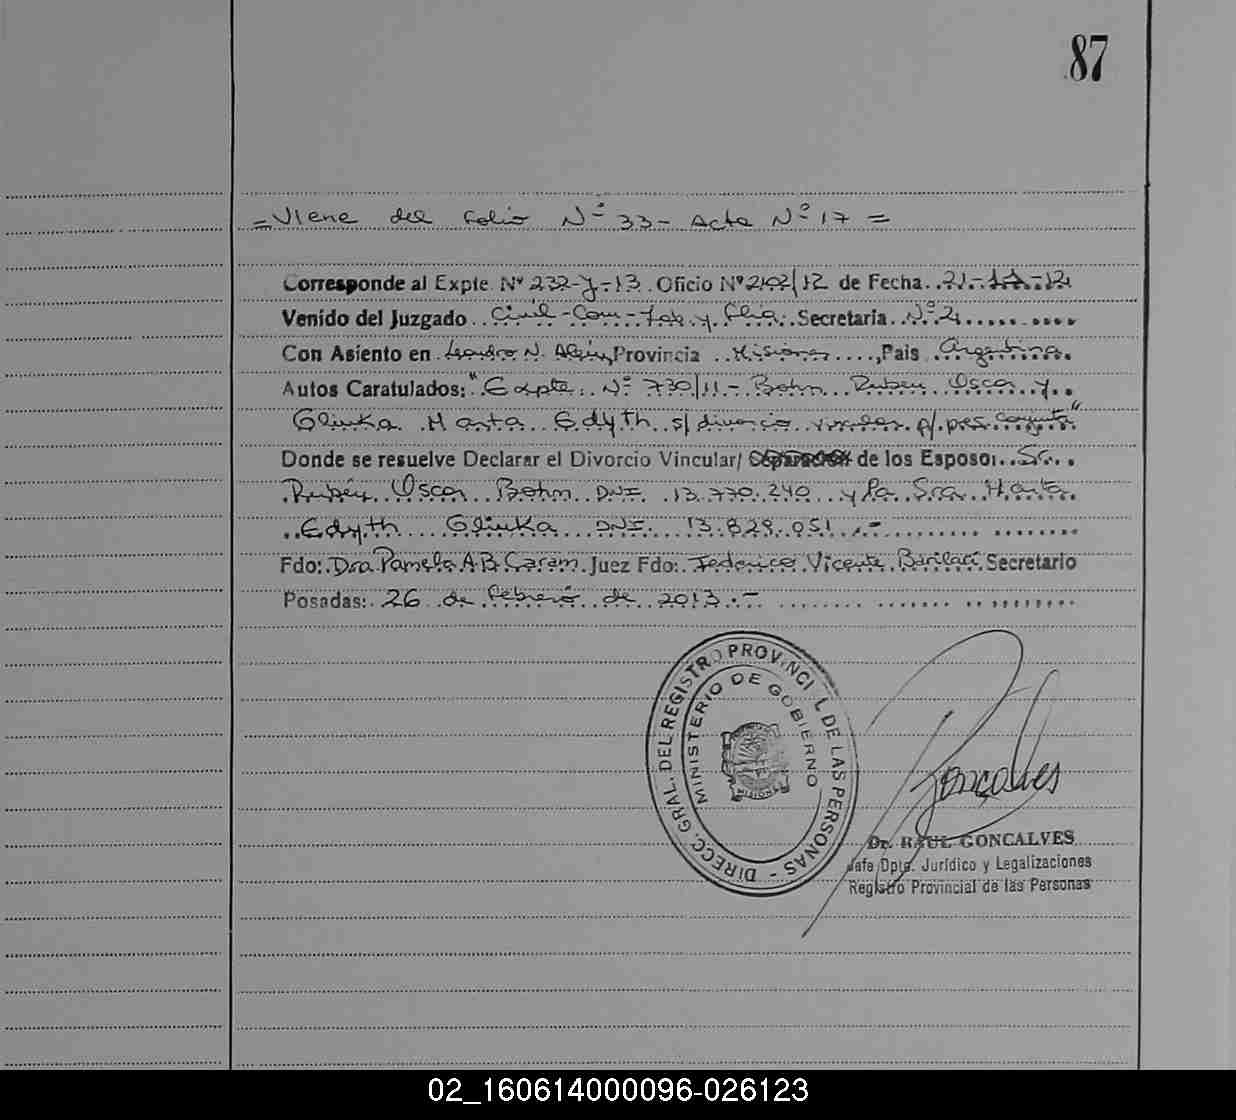 87
= Viene del folio Nº 33 - Acta Nº 17 =
Corresponde al Expte. Nº 232-Y-13. Oficio Nº 2102/12 de Fecha. 21-11-12
Venido del Juzgado Civil-Com-Lab. y Flia. Secretaria Nº 2
Con Asiento en Leandro N. Alem, Provincia Misiones, Pais Argentina
Autos Caratulados: "Expte. Nº 730/11 - Bohn Ruben Oscar y
Glinka Marta Edyth s/ divorcio vincular p/ pres. conjunta"
Donde se resuelve Declarar el Divorcio Vincular/ Separación de los Esposos. Sr.
Rubén Oscar Bohn DNI. 13.770.240 y la Sra. Marta
Edyth Glinka DNI. 13.829.051.-
Fdo: Dra Pamela A B. Caram. Juez Fdo: Federico Vicente Barilari Secretario
Posadas: 26 de febrero de 2013.-
DIRECC. GRAL. DEL REGISTRO PROVINCI L DE LAS PERSONAS -
MINISTERIO DE GOBIERNO
MISIONES
Goncalves
Dr. RAUL GONCALVES
Jefe Dpto. Jurídico y Legalizaciones
Registro Provincial de las Personas
02_160614000096-026123